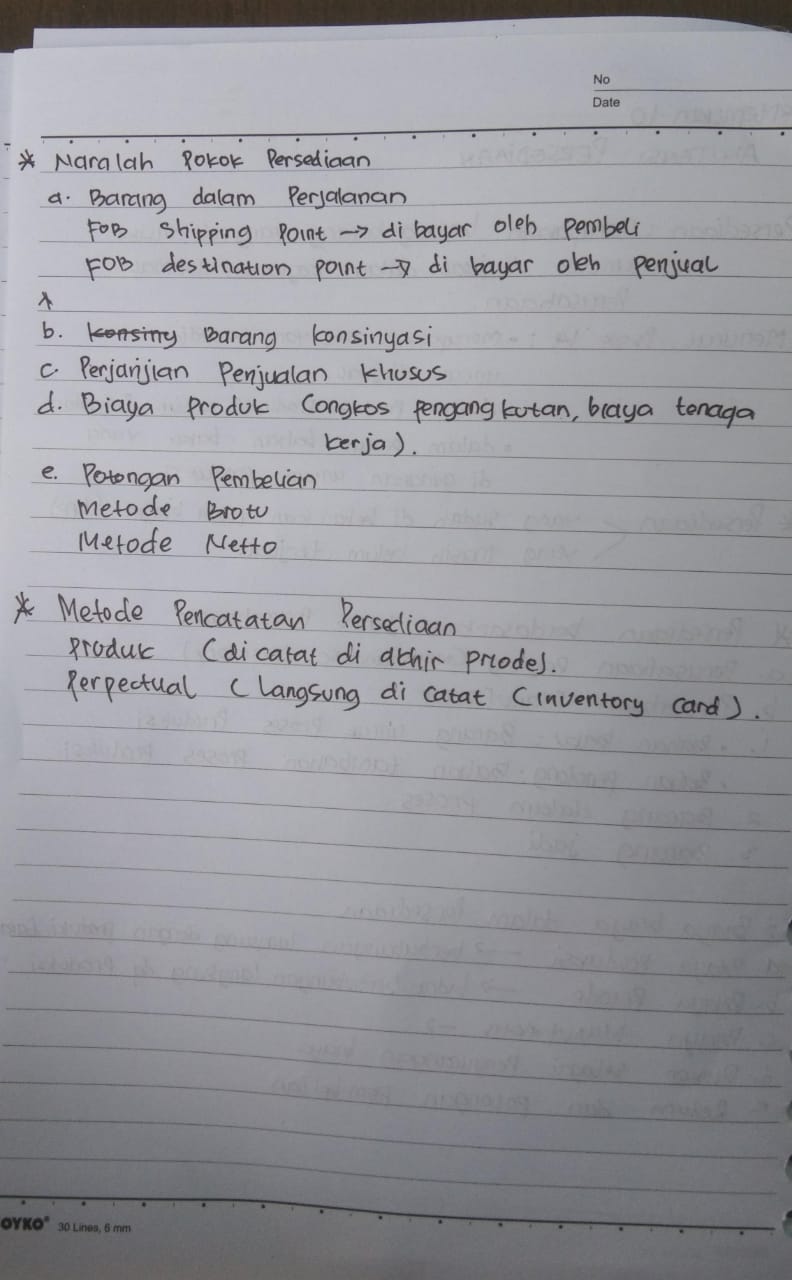 No
Date
* Maralah Pokok Persediaan
a. Barang dalam Perjalanan
FOB Shipping Point → di bayar oleh pembeli
FOB destination point → di bayar oleh penjual
b. Konsiny Barang konsinyasi
c. Perjanjian Penjualan Khusus
d. Biaya Produk (ongkos pengangkutan, biaya tenaga
kerja).
e. Potongan Pembelian
Metode Broto
Metode Netto
* Metode Pencatatan Persediaan
Produk (di catat di akhir priode).
Perpectual (langsung di catat (inventory card).
OYKO 30 Lines, 6 mm